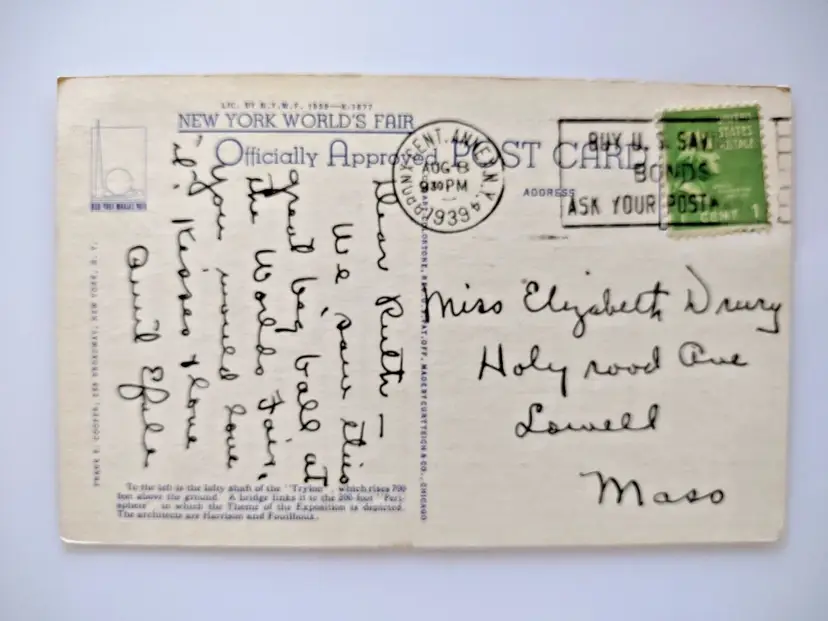 LIC. BY N.Y.W.F. 1939
NEW YORK WORLD'S FAIR
Officially Approved POST CARD
ADDRESS
NEW YORK WORLD'S FAIR
BRONX CENT. ANNEX. N.Y.
AUG 8
9 30 PM
1939
BUY U.S. SAV
BONDS
ASK YOUR POSTM
UNITED
STATES
POSTAGE
CENT 1
Dear Ruth —
We saw this
great big ball at
the Worlds Fair.
You would love
it. Kisses & love
Miss Elizabeth Drury
Holyrood Ave
Lowell
Mass
FRANK E. COOPER, BROADWAY, NEW YORK, N. Y.
REG. U.S. PAT. OFF. MADE BY CURT TEICH & CO., CHICAGO
To the left is the lofty shaft of the "Trylon", which rises 700
feet above the ground. A bridge links it to the 200 foot "Peri-
sphere" in which the Theme of the Exposition is depicted.
The architects are Harrison and Fouilhoux.